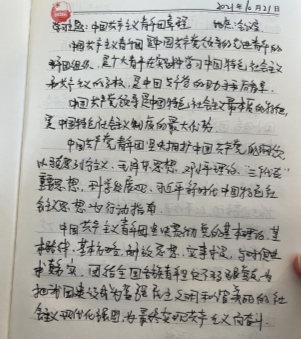 2021年6月21日
学习主题:中国共产主义青年团章程 地点:会议室
中国共产主义青年团是中国共产党领导的先进青年的
群团组织,是广大青年在实践中学习中国特色社会主义
和共产主义的学校,是中国共产党的助手和后备军。
中国共产党领导是中国特色社会主义最本质的特征,
是中国特色社会主义制度的最大优势。
中国共产主义青年团坚决拥护中国共产党的纲领,
以马克思列宁主义、毛泽东思想、邓小平理论、三个代表
重要思想、科学发展观、习近平新时代中国特色社
会主义思想为行动指南,
中国共产主义青年团坚决贯彻党的基本理论、基
本路线、基本方略,解放思想,实事求是,与时俱进
求真务实,团结全国各族青年
把我国建设成为富强民主文明和谐美丽的社
会主义现代化强国,为最终实现共产主义而奋斗。